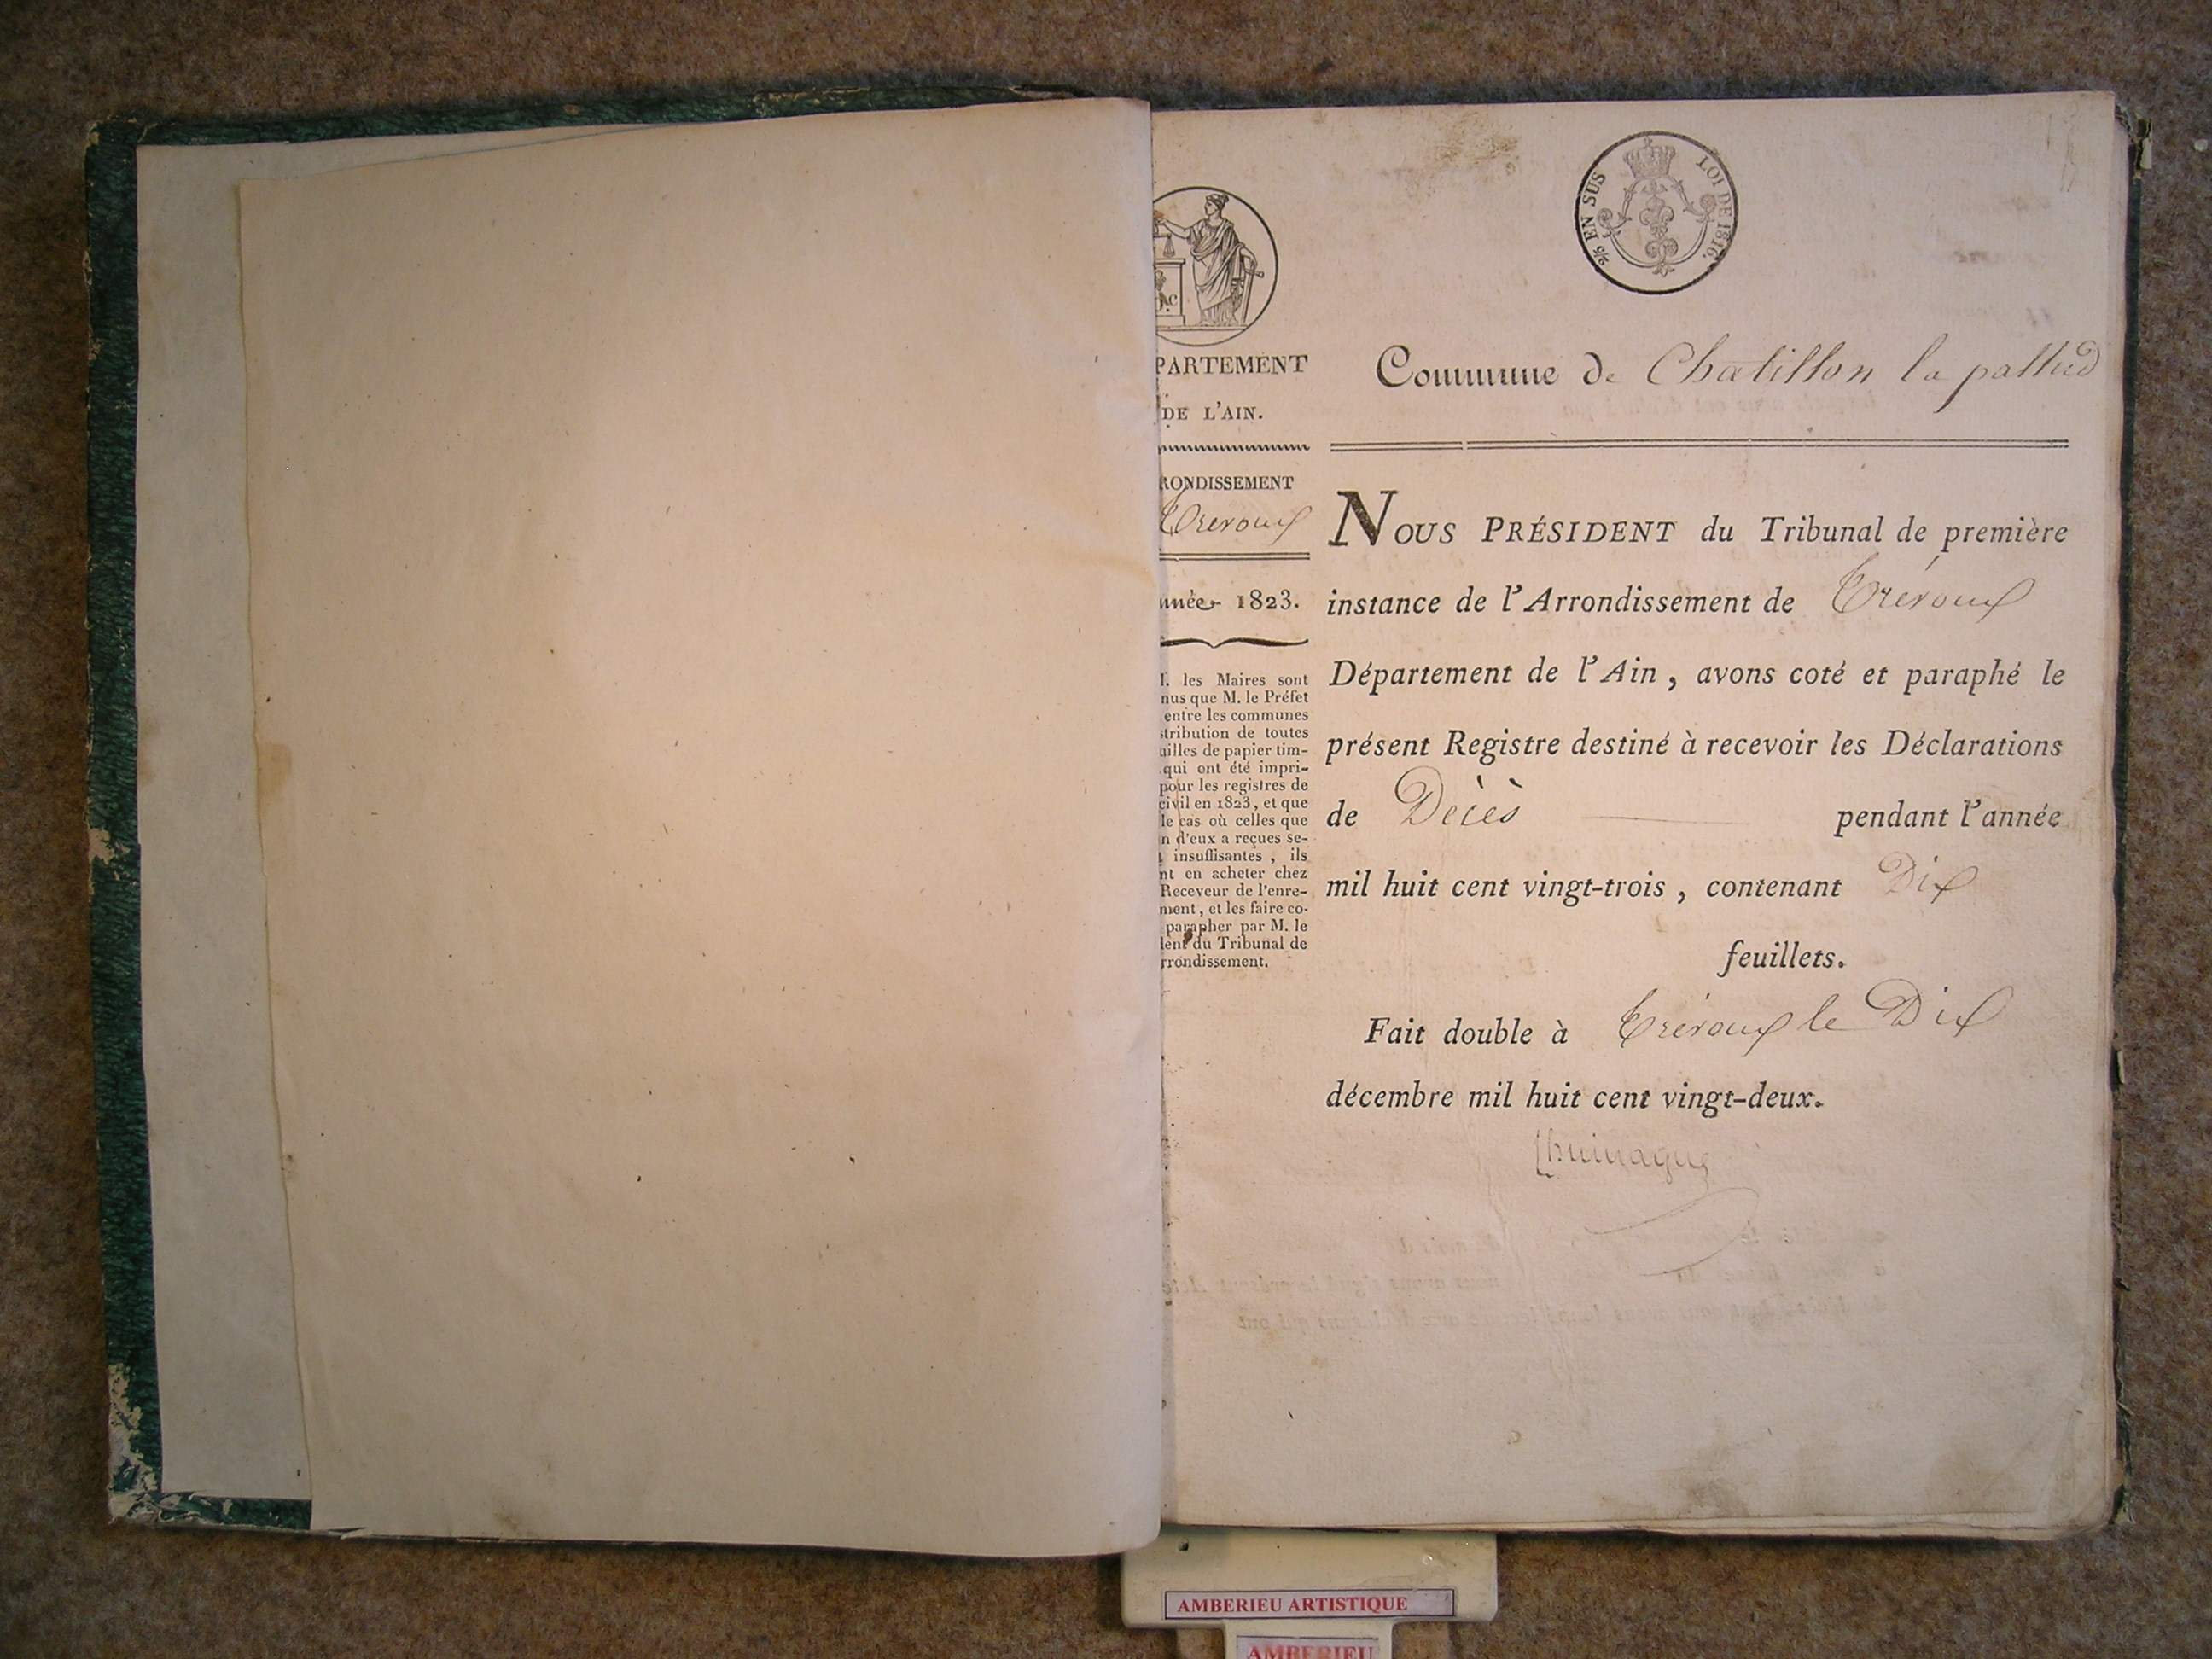 2/5 EN SUS
LOI DE 1816.
Commune de Chatillon la pallud
PARTEMENT
DE L'AIN.
RONDISSEMENT
Trévoux
nnée 1823.
I. les Maires sont
nus que M. le Préfet
entre les communes
stribution de toutes
uilles de papier tim-
qui ont été impri-
pour les registres de
civil en 1823, et que
le cas où celles que
n d'eux a reçues se-
t insuffisantes, ils
nt en acheter chez
Receveur de l'enre-
ment, et les faire co-
parapher par M. le
dent du Tribunal de
rrondissement.
NOUS PRÉSIDENT du Tribunal de première
instance de l'Arrondissement de Trévoux
Département de l'Ain, avons coté et paraphé le
présent Registre destiné à recevoir les Déclarations
de Décès pendant l'année
mil huit cent vingt-trois, contenant Dix
feuillets.
Fait double à Trévoux le Dix
décembre mil huit cent vingt-deux.
AMBERIEU ARTISTIQUE
AMBERIEU